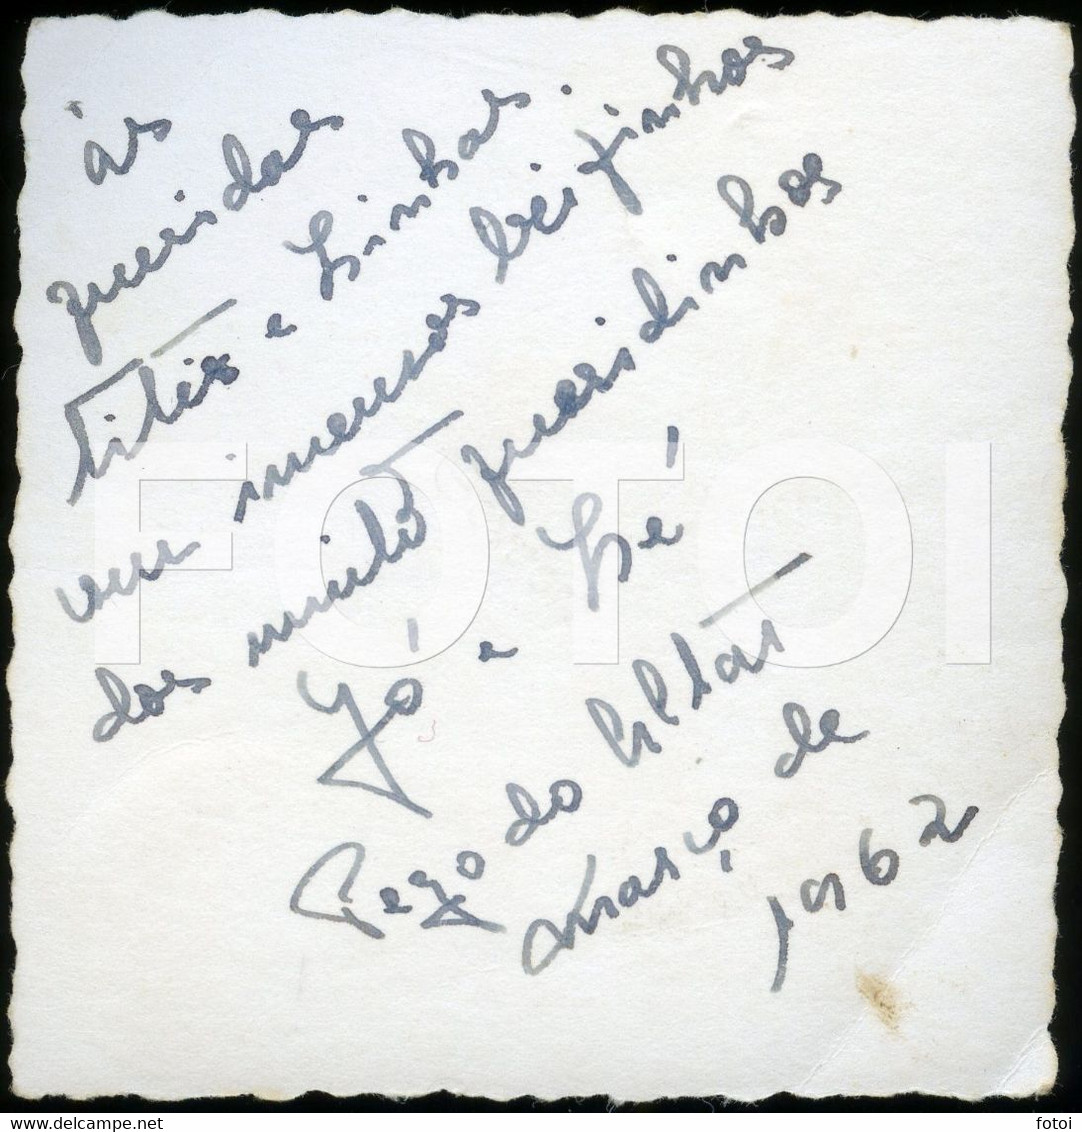 às
queridas
titis e Linhas.
um imensos beijinhos
dos muito queridinhos
Jó e Lé
Pego do Altar
Março de
1962
FOTOI
www.delcampe.net
fotoi